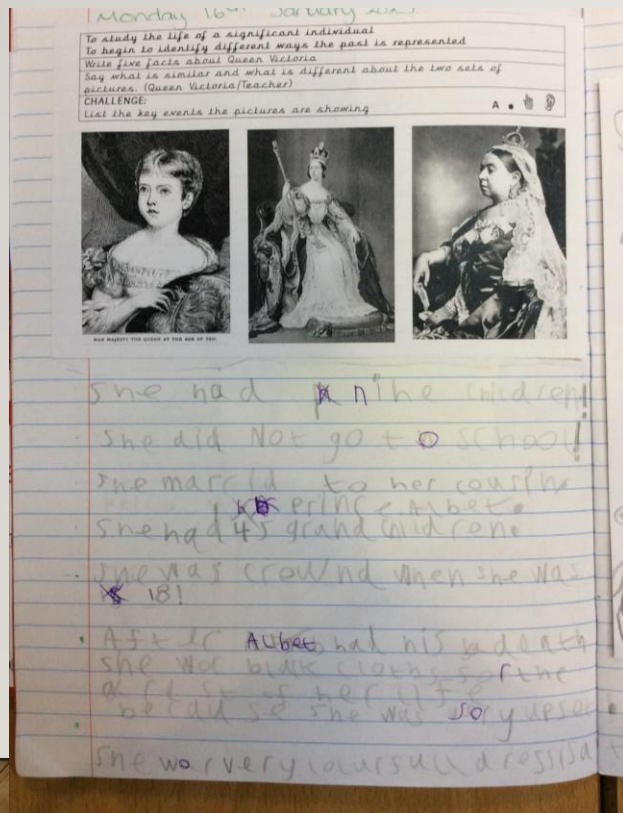 Monday 16th January
To study the life of a significant individual
To begin to identify different ways the past is represented
Write five facts about Queen Victoria
Say what is similar and what is different about the two sets of
pictures. (Queen Victoria/Teacher)
CHALLENGE:
List the key events the pictures are showing
A
HER MAJESTY THE QUEEN AT THE AGE OF TEN.
she had nine children!
she did Not go to school!
she marrid to her cousin.
prince Albet.
she had 45 grandchildren.
she was crownd when she was
18!
After Albet had his death
she wor blak cloths for the
rest of her life
becau se she was so upset.
she wor very coloursull dressis